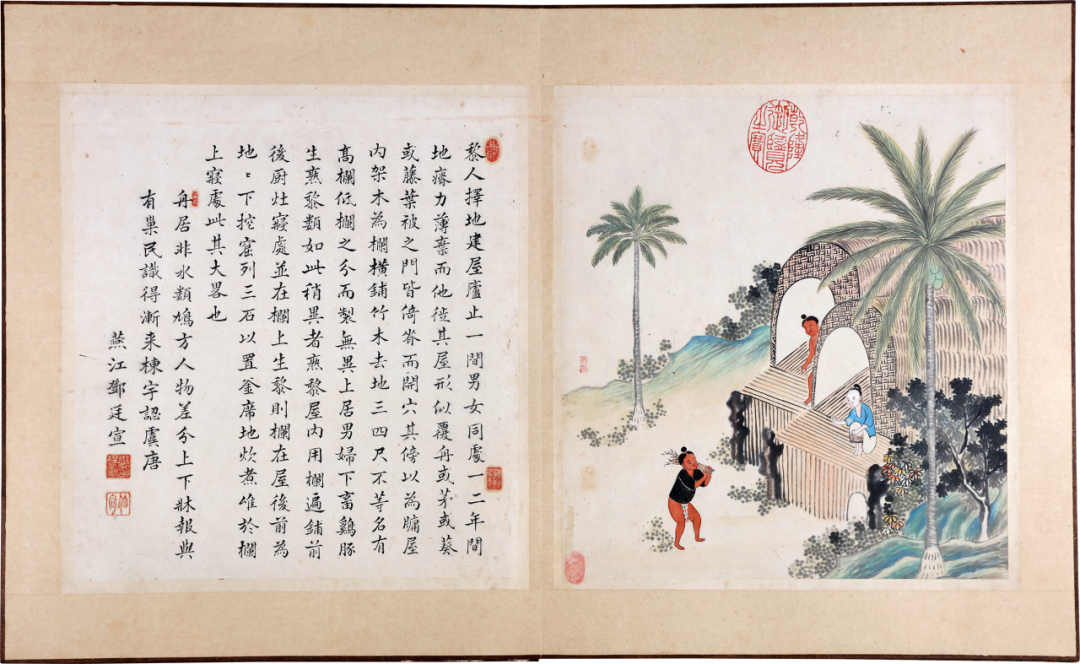 黎人擇地建屋廬止一間男女同處一二年間
地瘠力薄棄而他徙其屋形似覆舟或茅或葵
或藤葉被之門皆倚脊而開穴其傍以為牖屋
內架木為欄橫鋪竹木去地三四尺不等名有
高欄低欄之分而製無異上居男婦下畜鷄豚
生熟黎類如此稍異者熟黎屋內用欄遍鋪前
後厨灶寢處並在欄上生黎則欄在屋後前為
地〻下挖窟列三石以置釜席地炊煮惟於欄
上寢處此其大畧也
舟居非水類鳩方人物差分上下牀報與
有巢民識得漸来棟宇認虞唐
燕江鄧廷宣
乾隆御覽之寶